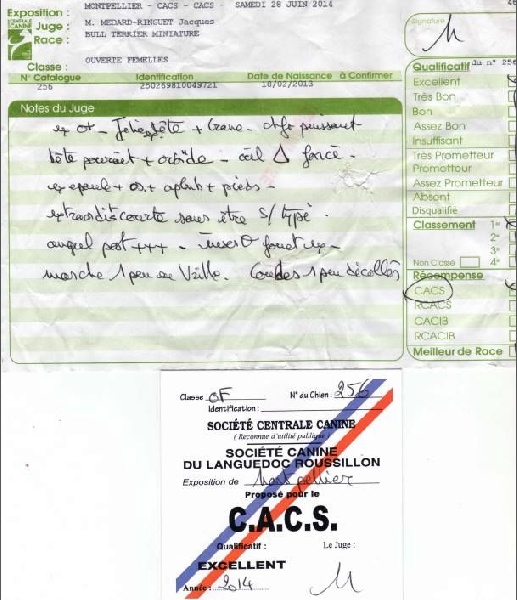 Exposition : MONTPELLIER - CACS - CACS - SAMEDI 28 JUIN 2014
Juge : M. MEDARD-RINGUET Jacques
Race : BULL TERRIER MINIATURE
Classe : OUVERTE FEMELLES
N° Catalogue Identification Date de Naissance à Confirmer
256 250259810049721 18/02/2013
Notes du Juge
ex os - Jolie tête + Crane - chfr puissant
tête + ovoïde - œil Δ foncé -
ex epaule + os + aplomb + pieds -
extra dis courte sans être s/ typé
angul post +++ - fouet ex -
marche 1 peu en Vrille. Coudes 1 peu décollés
Signature
Qualificatif du n° 256
Excellent
Très Bon
Bon
Assez Bon
Insuffisant
Très Prometteur
Prometteur
Assez Prometteur
Absent
Disqualifié
Classement 1e
2e
3e
Non Classé 4e
Récompense
CACS
RCACS
CACIB
RCACIB
Meilleur de Race
Classe OF N° du Chien : 256
Identification :
SOCIÉTÉ CENTRALE CANINE
( Reconnue d'utilité publique )
SOCIÉTÉ CANINE
DU LANGUEDOC ROUSSILLON
Exposition de Montpellier
Proposé pour le
C.A.C.S.
Qualificatif : Le Juge :
EXCELLENT
Année : 2014